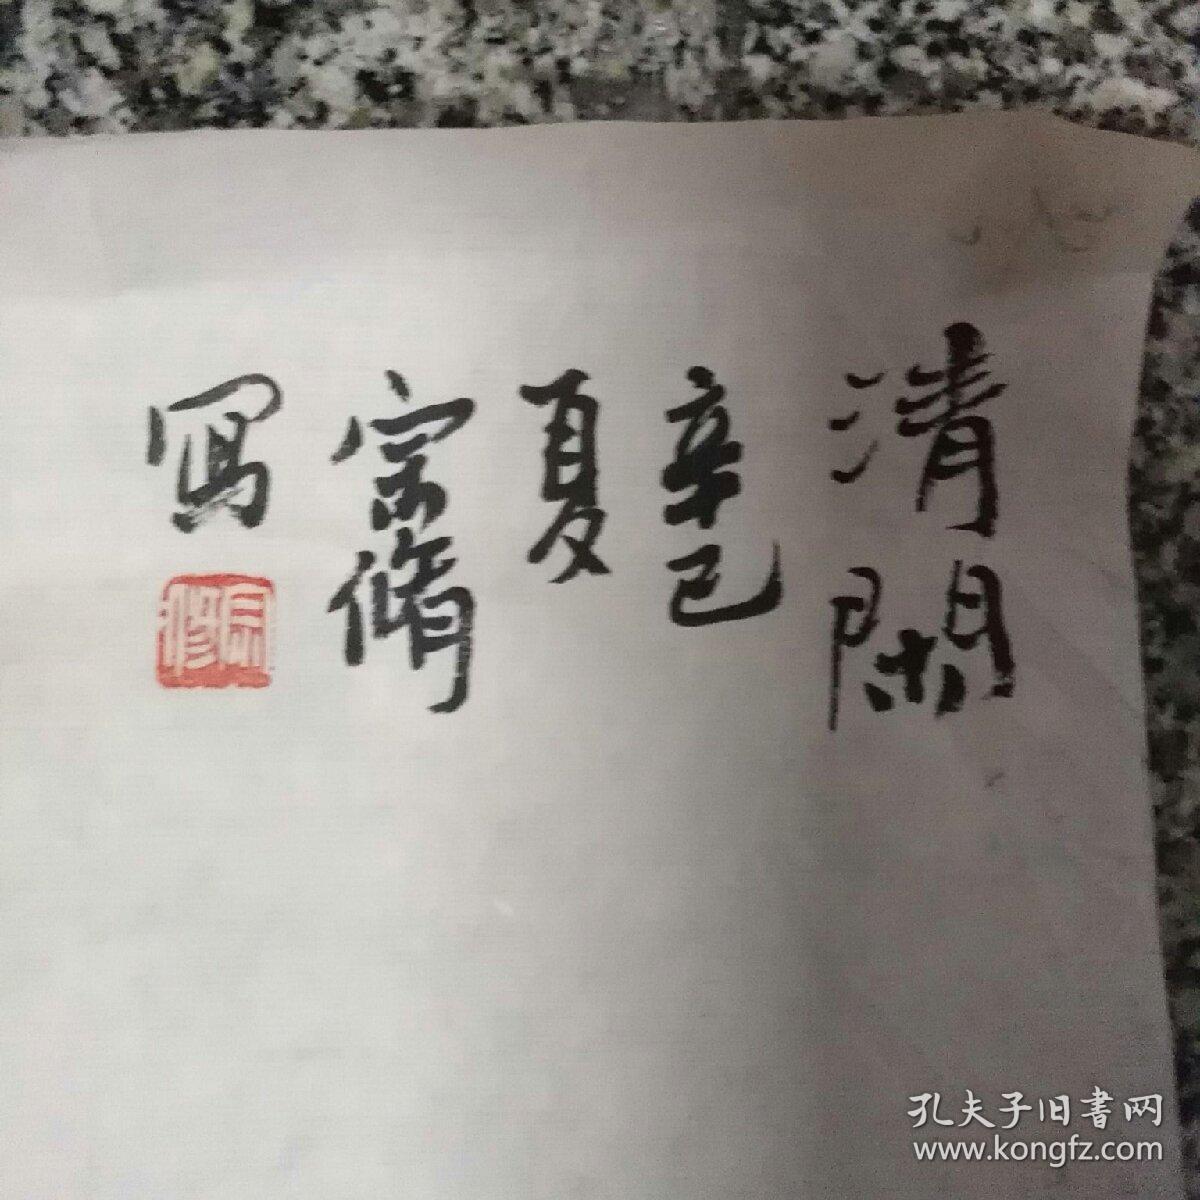 清閑
辛巳
夏
宗脩
寫
宗修
孔夫子旧書网
www.kongfz.com